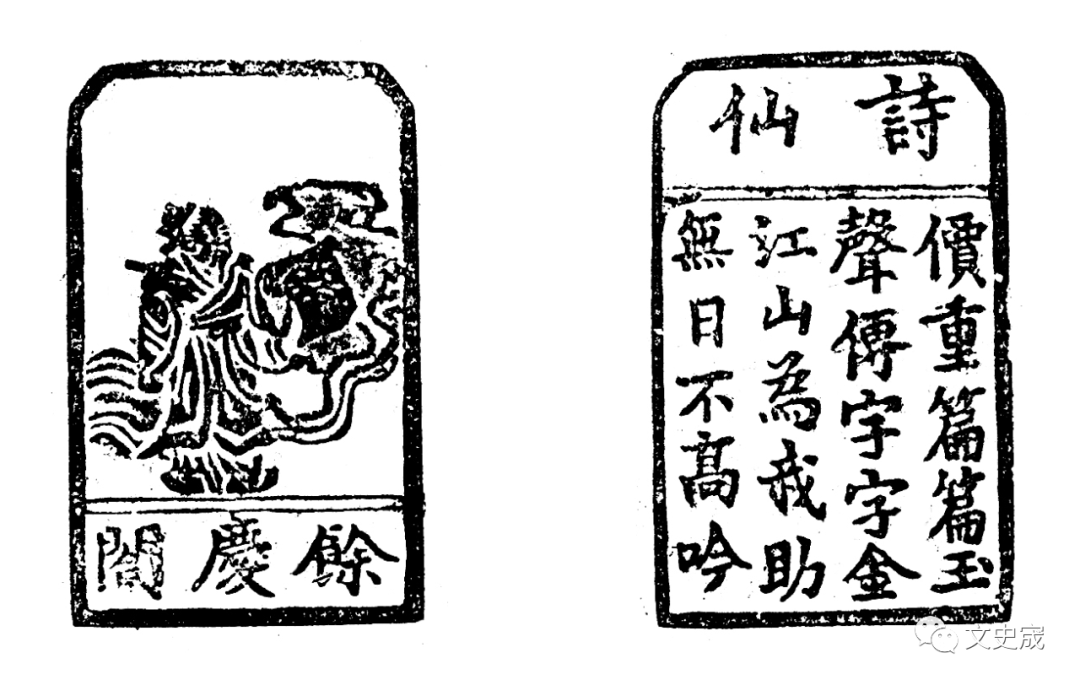 詩仙
價重篇篇玉
聲傳字字金
江山為我助
無日不高吟
餘慶
文史宬